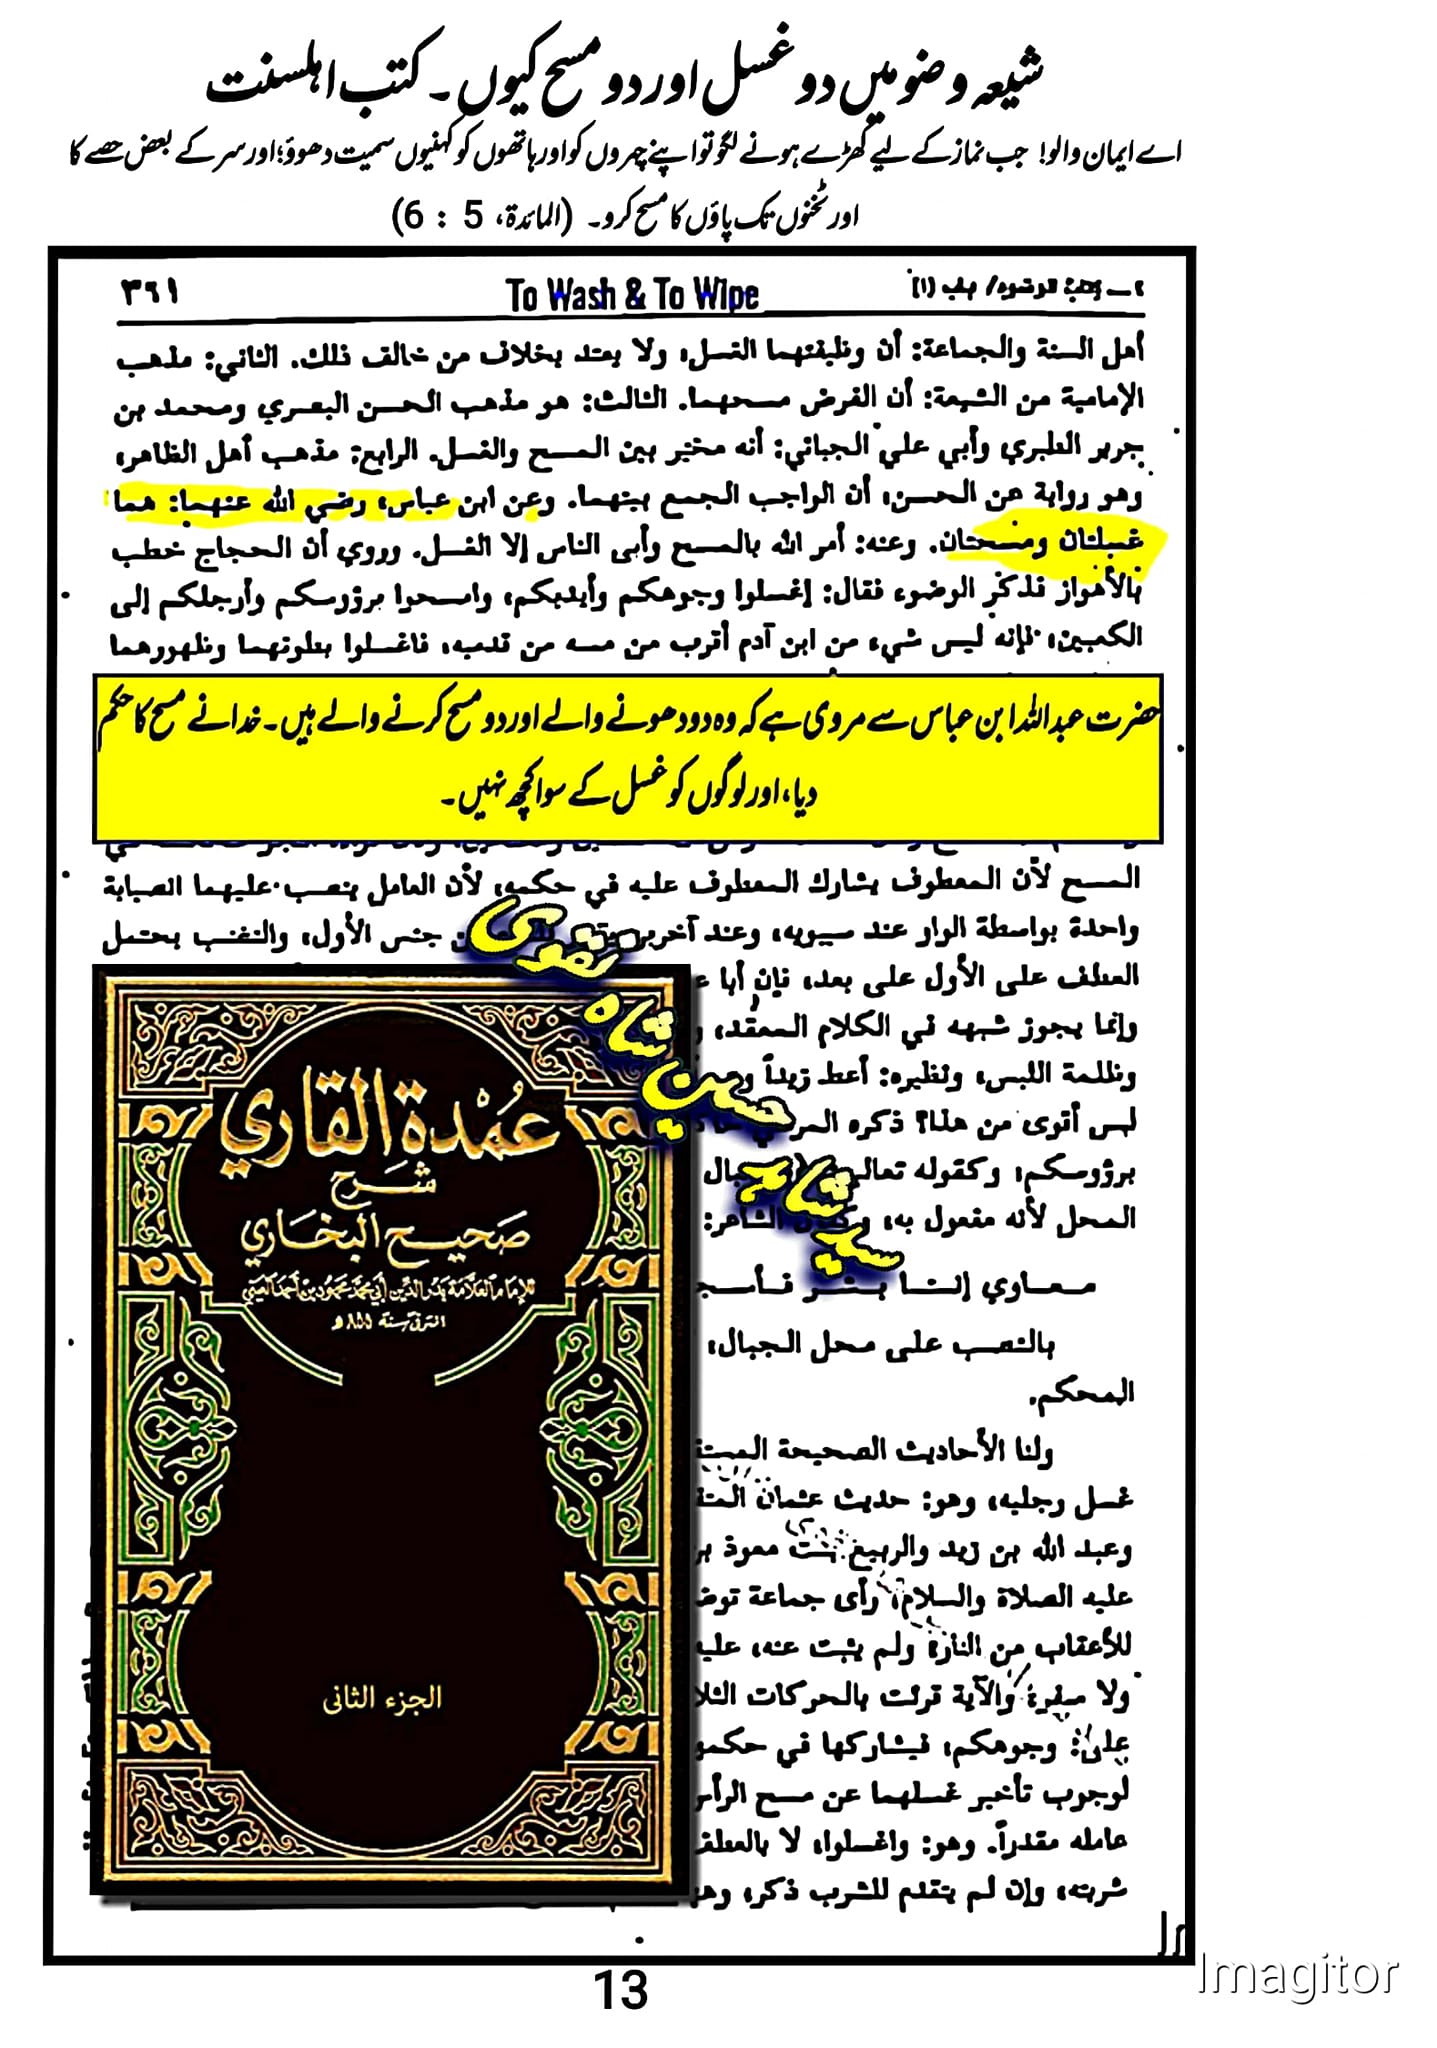 شیعہ وضو میں دو غسل اور دو مسح کیوں۔ کتب اہلسنت
اے ایمان والو! جب نماز کے لیے کھڑے ہونے لگو تو اپنے چہروں کو اور ہاتھوں کو کہنیوں سمیت دھوؤ؛ اور سر کے بعض حصے کا
اور ٹخنوں تک پاؤں کا مسح کرو۔ (المائدۃ، 5 : 6)
٤ ــ كتاب الوضوء/ باب (١)
To Wash & To Wipe
٣٦١
أهل السنة والجماعة: أن وظيفتهما الغسل، ولا يعتد بخلاف من خالف ذلك. الثاني: مذهب
الإمامية من الشيعة: أن الفرض مسحهما. الثالث: هو مذهب الحسن البصري ومحمد بن
جرير الطبري وأبي علي الجبائي: أنه مخير بين المسح والغسل. الرابع: مذهب أهل الظاهر،
وهو رواية عن الحسن، أن الواجب الجمع بينهما. وعن ابن عباس، رضي الله عنهما: هما
غسلتان ومسحتان. وعنه: أمر الله بالمسح وأبى الناس إلا الغسل. وروي أن الحجاج خطب
بالأهواز فذكر الوضوء فقال: إغسلوا وجوهكم وأيديكم، وامسحوا برؤوسكم وأرجلكم إلى
الكعبين، فإنه ليس شيء من ابن آدم أقرب من مسه من قدميه، فاغسلوا بطونهما وظهورهما
حضرت عبداللہ ابن عباس سے مروی ہے کہ وہ دو دھونے والے اور دو مسح کرنے والے ہیں۔ خدا نے مسح کا حکم
دیا، اور لوگوں کو غسل کے سوا کچھ نہیں۔
المسح لأن المعطوف يشارك المعطوف عليه في حكمه، لأن العامل ينصب عليهما انصبابة
واحدة بواسطة الواو عند سيبويه، وعند آخرين جنس الأول، والنصب يحتمل
العطف على الأول على بعد، فإن أبا
وإنما يجوز شبهه في الكلام المعقد،
وظلمة اللبس، ونظيره: أعط زيداً
ليس أقوى من هذا؟ ذكره
برؤوسكم، وكقوله تعالى
المحل لأنه مفعول به، الشاعر:
معاوي إننا بشر فأسجح
بالنصب على محل الجبال،
المحكم.
ولنا الأحاديث الصحيحة
غسل رجليه، وهو: حديث عثمان
وعبد الله بن زيد والربيع بنت معوذ
عليه الصلاة والسلام، رأى جماعة
للأعقاب من النار، ولم يثبت عنه،
ولا سفر، والآية قرئت بالحركات
على: وجوهكم، فيشاركها في
لوجوب تأخير غسلهما عن مسح
عامله مقدراً. وهو: واغسلوا، لا
شربته، وإن لم يتقدم للشرب ذكر،
سید شاہد حسین شاہ نقوی
عمدة القاري
شرح
صحيح البخاري
للإمام العلامة بدر الدين أبي محمد محمود بن أحمد العيني
المتوفى سنة ٨٥٥ هـ
الجزء الثاني
13
Imagitor